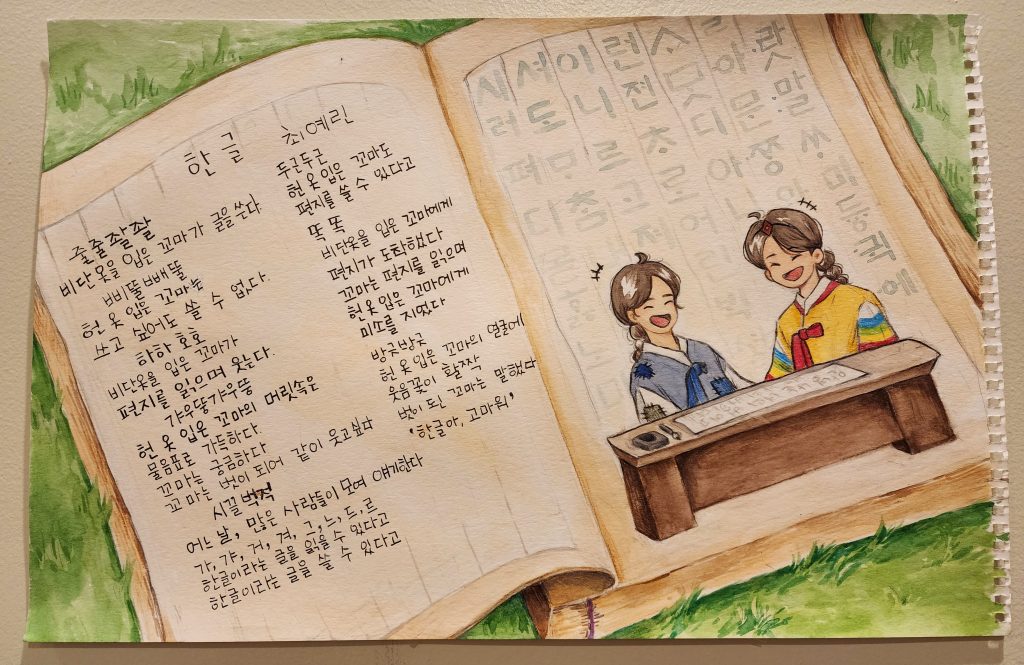 한글 최예린
줄줄좔좔
비단옷을 입은 꼬마가 글을 쓴다
삐뚤빼뚤
헌 옷 입은 꼬마는
쓰고 싶어도 쓸 수 없다.
하하 호호
비단옷을 입은 꼬마가
편지를 읽으며 웃는다.
갸우뚱갸우뚱
헌 옷 입은 꼬마의 머릿속은
물음표로 가득하다.
꼬마는 궁금하다
꼬마는 벗이 되어 같이 웃고싶다
시끌벅적
어느 날, 많은 사람들이 모여 얘기한다
가, 갸, 거, 겨, 그, 느, 드, 르
한글이라는 글을 읽을 수 있다고
한글이라는 글을 쓸 수 있다고
두근두근
헌 옷 입은 꼬마도
편지를 쓸 수 있다고
똑 똑
비단옷을 입은 꼬마에게
편지가 도착했다
꼬마는 편지를 읽으며
헌 옷 입은 꼬마에게
미소를 지었다
방긋방긋
헌 옷 입은 꼬마의 얼굴에
웃음꽃이 활짝
벗이 되긴 꼬마는 말했다
‘한글아, 고마워’
랏말ᄊᆞ미듕귁에